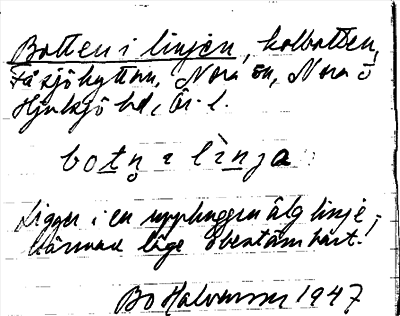 Botten i linjen, kolbotten,
Fåsjöhyttan, Nora sn, Nora o
Hjulsjö bd, Ör. l.
botn̥ i lìnja
Ligger i en upphuggen älg linje,
närmare läge obestämbart.
Bo Halvarsson 1947